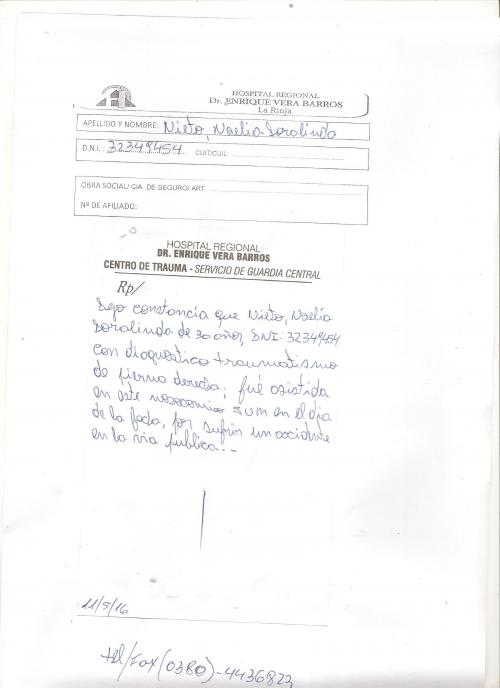 HOSPITAL REGIONAL
Dr. ENRIQUE VERA BARROS
La Rioja
APELLIDO Y NOMBRE: Nieto, Noelia Doralinda
D.N.I.: 32349454 CUIT/CUIL:
OBRA SOCIAL/ CIA. DE SEGURO/ ART:
Nº DE AFILIADO:
HOSPITAL REGIONAL
DR. ENRIQUE VERA BARROS
CENTRO DE TRAUMA - SERVICIO DE GUARDIA CENTRAL
Rp/
Dejo constancia que Nieto, Noelia
Doralinda de 30 años, DNI: 32349454
con diagnostico traumatismo
de pierna derecha; fué asistida
en este nosocomio en el dia
de la fecha, por sufrir un accidente
en la via publica.-
11/5/16
tel/Fax (0380)-4436823